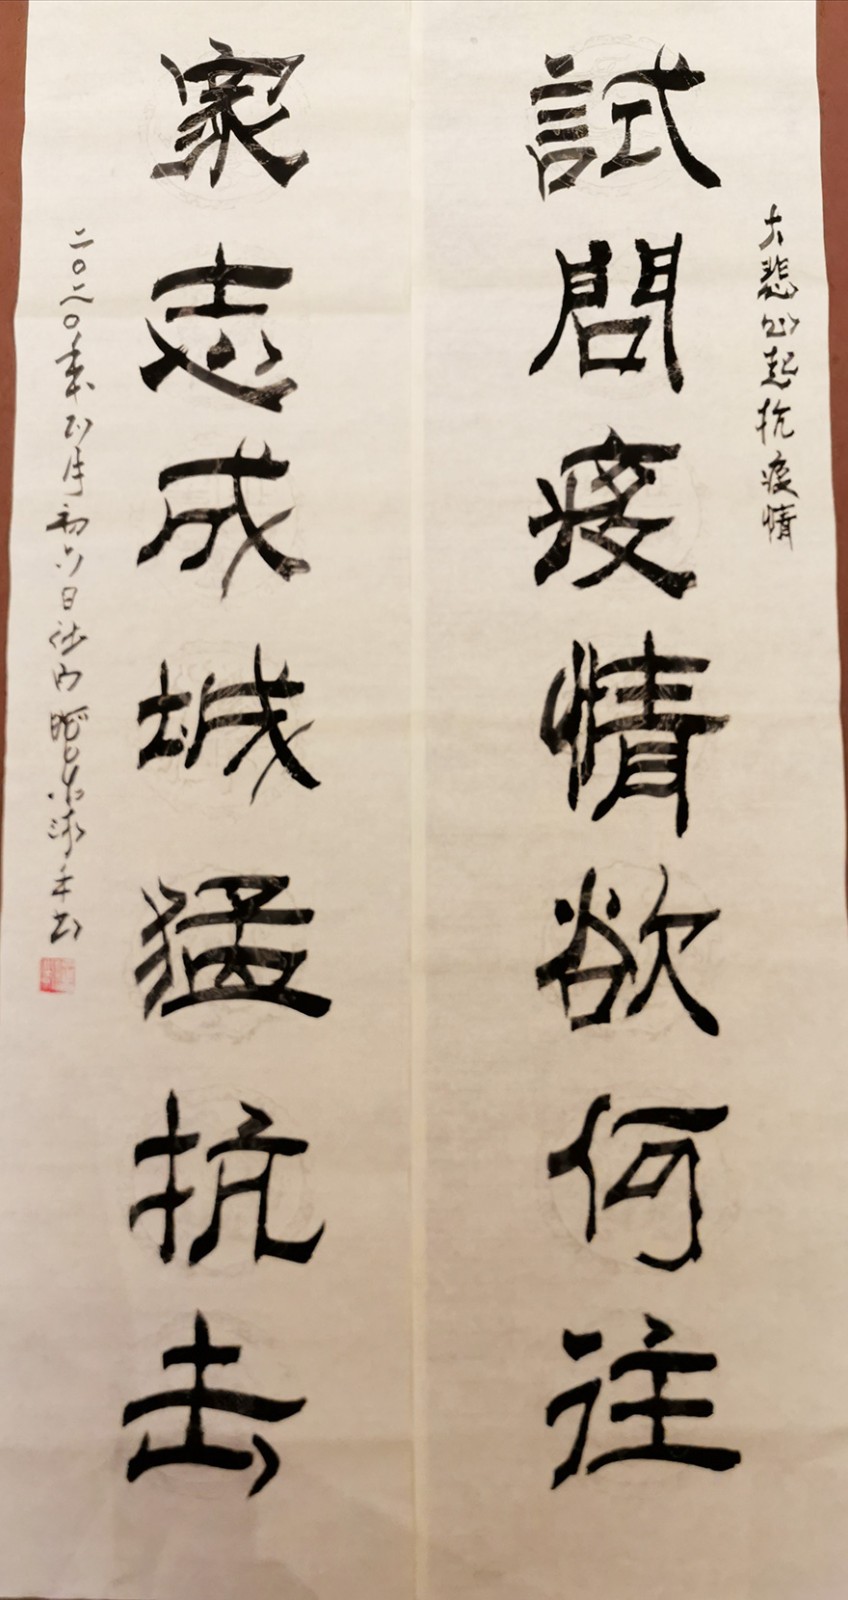 大悲心起抗疫情
試問疫情欲何往
衆志成城猛抗击
二〇二〇年正月初六日